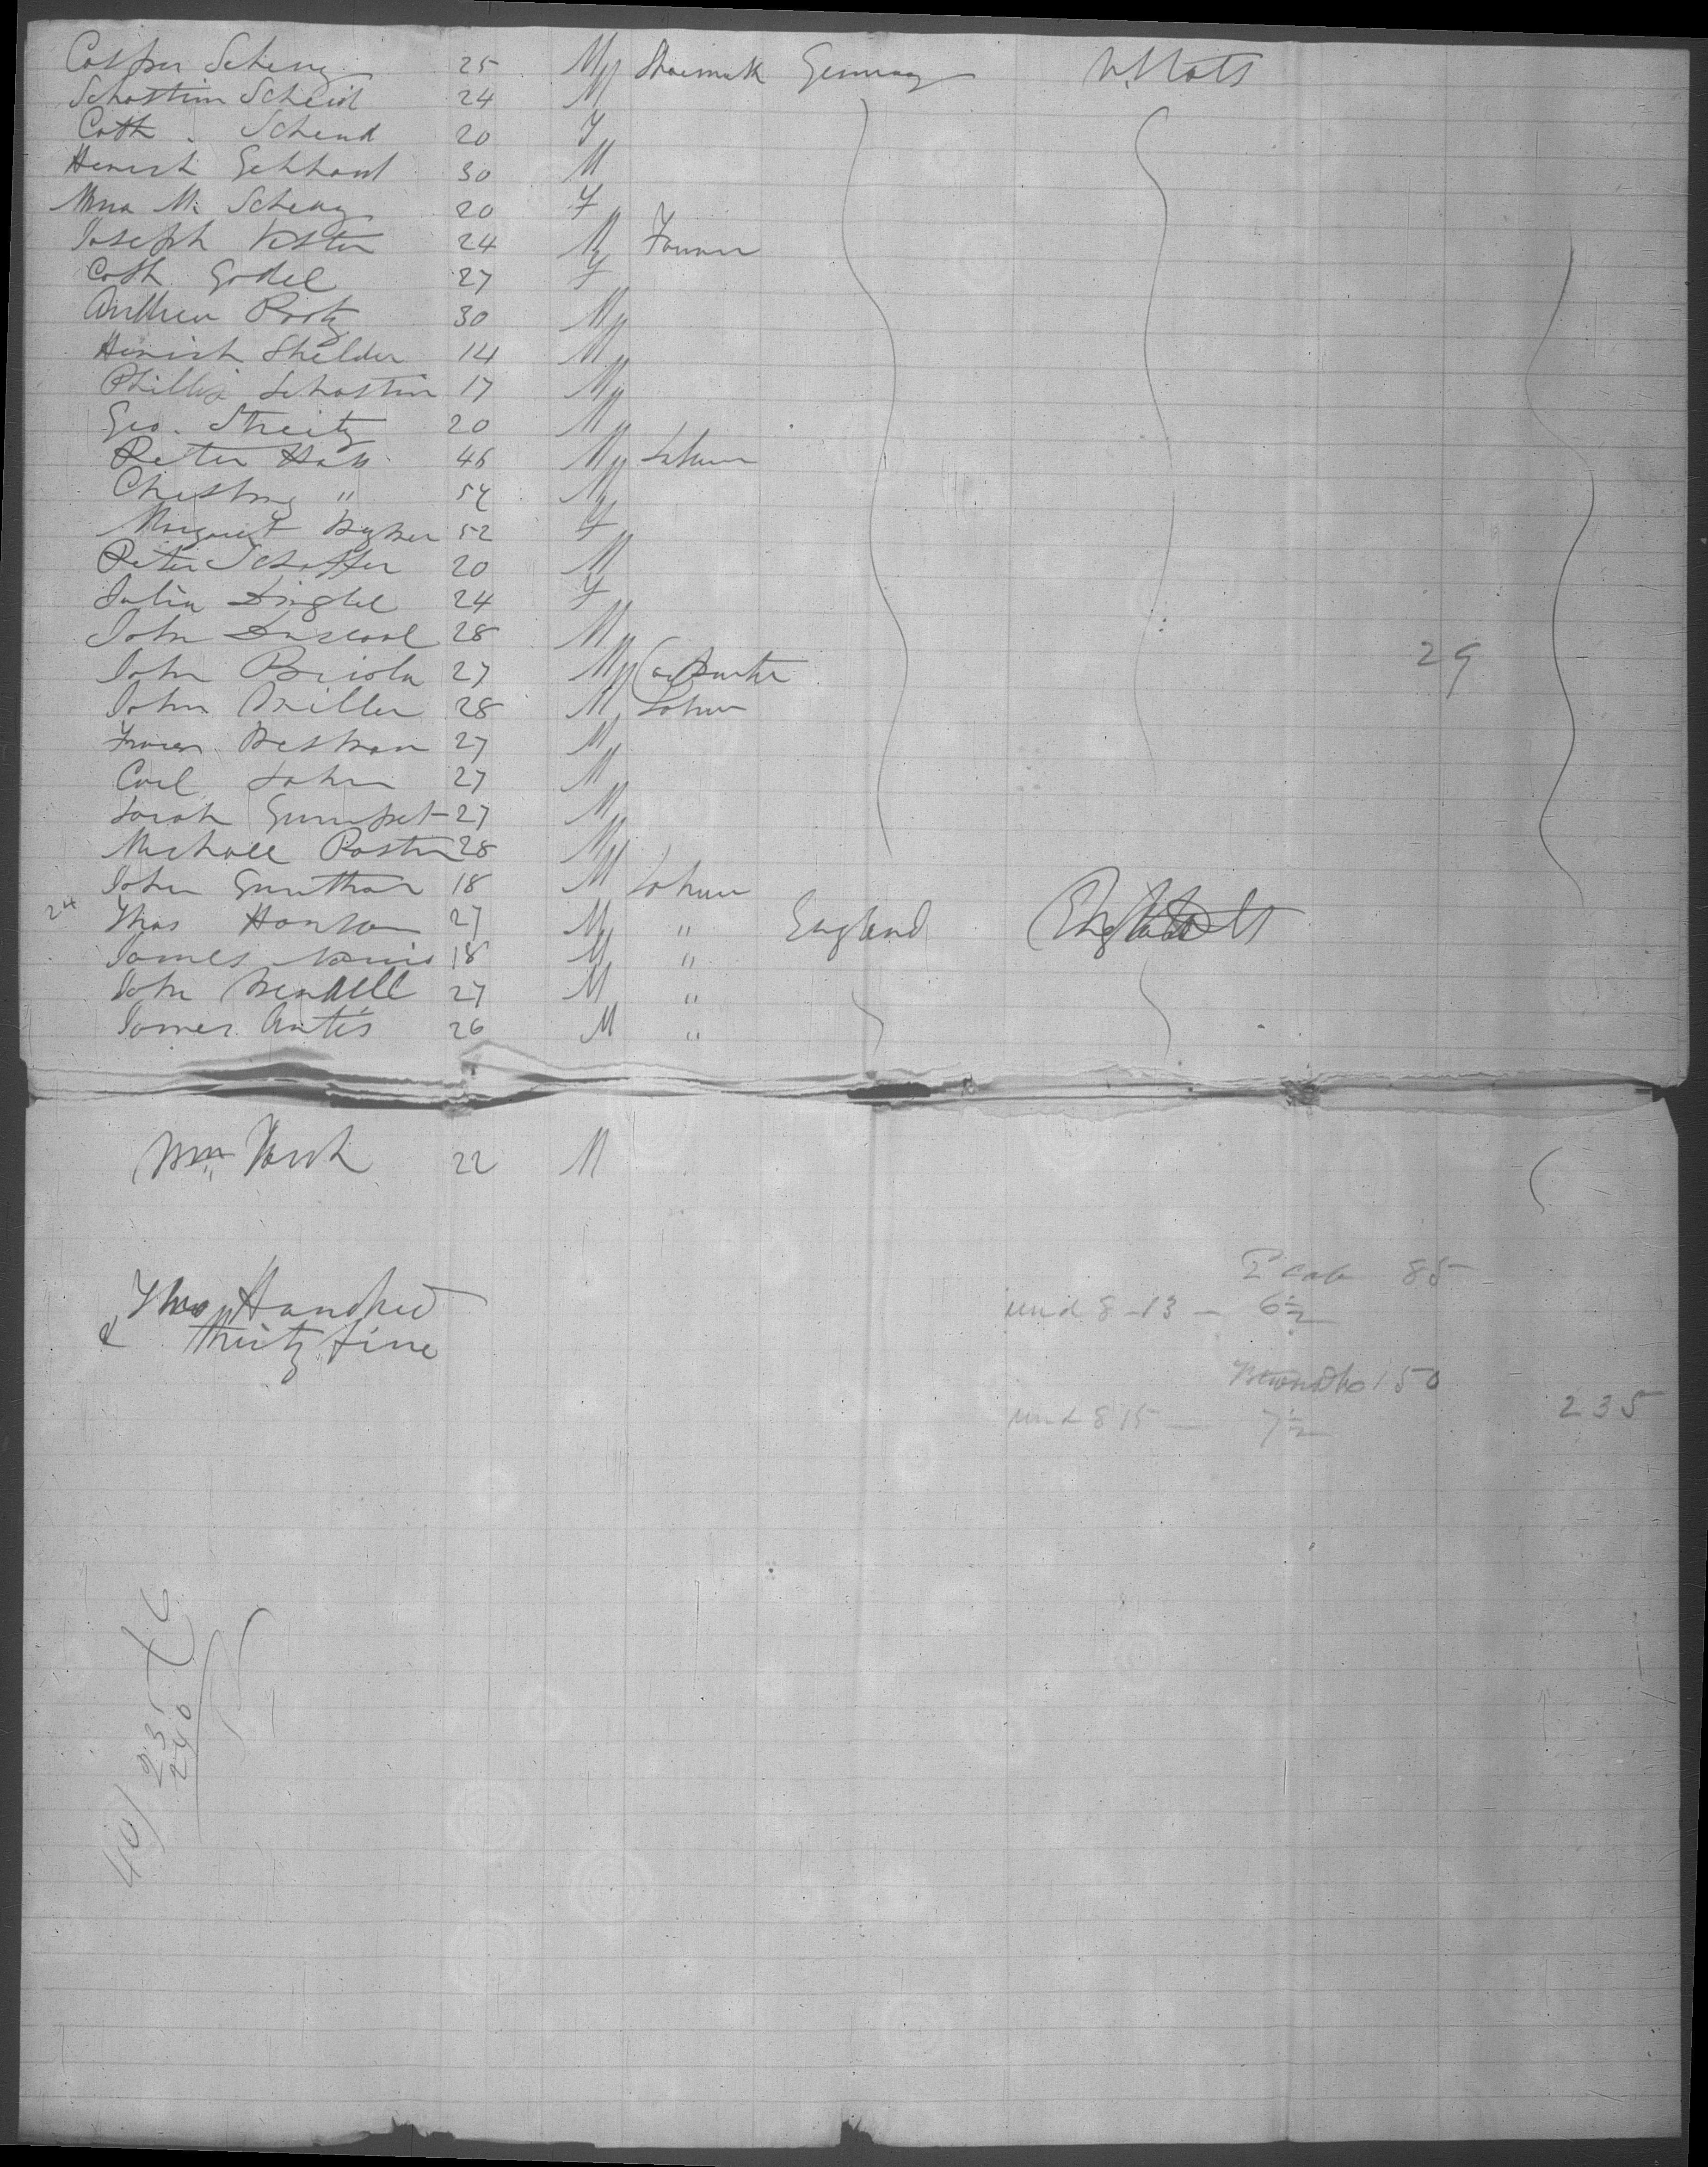 Casper Scheng 25 M Shoemak Germany U. Stats
Sebastian Scheid 24 M
Cath. Schend 20 F
Henrich Gebhard 30 M
Anna M. Scheng 20 F
Joseph Vester 24 M Farmer
Cath Godel 27 F
Andrew Rootz 30 M
Henrich Shelder 14 M
Phillip Sebastin 17 M
Geo. Streitz 20 M
Peter Hass 45 M Labuer
Christing " 54 M
Margaret 52 F
Peter Schaffer 20 M
Julia Dingle 24 F
John 28 M
John 27 M Carpenter 29
John Miller 28 M Labuer
Frances 27 M
Carl John 27 M
Sarah Gumpet 27 M
Michael Paster 28 M
John Gunthar 18 M Labuer
24 Thos Hanson 27 M " England
James 18 M "
John 27 M "
James Antis 26 M "
Wm 22 M
Two Hundred
& thirty five
2 cab 85
und 8-13 - 6½
150
und 8 15 - 7½
235
40) 235 (6
240